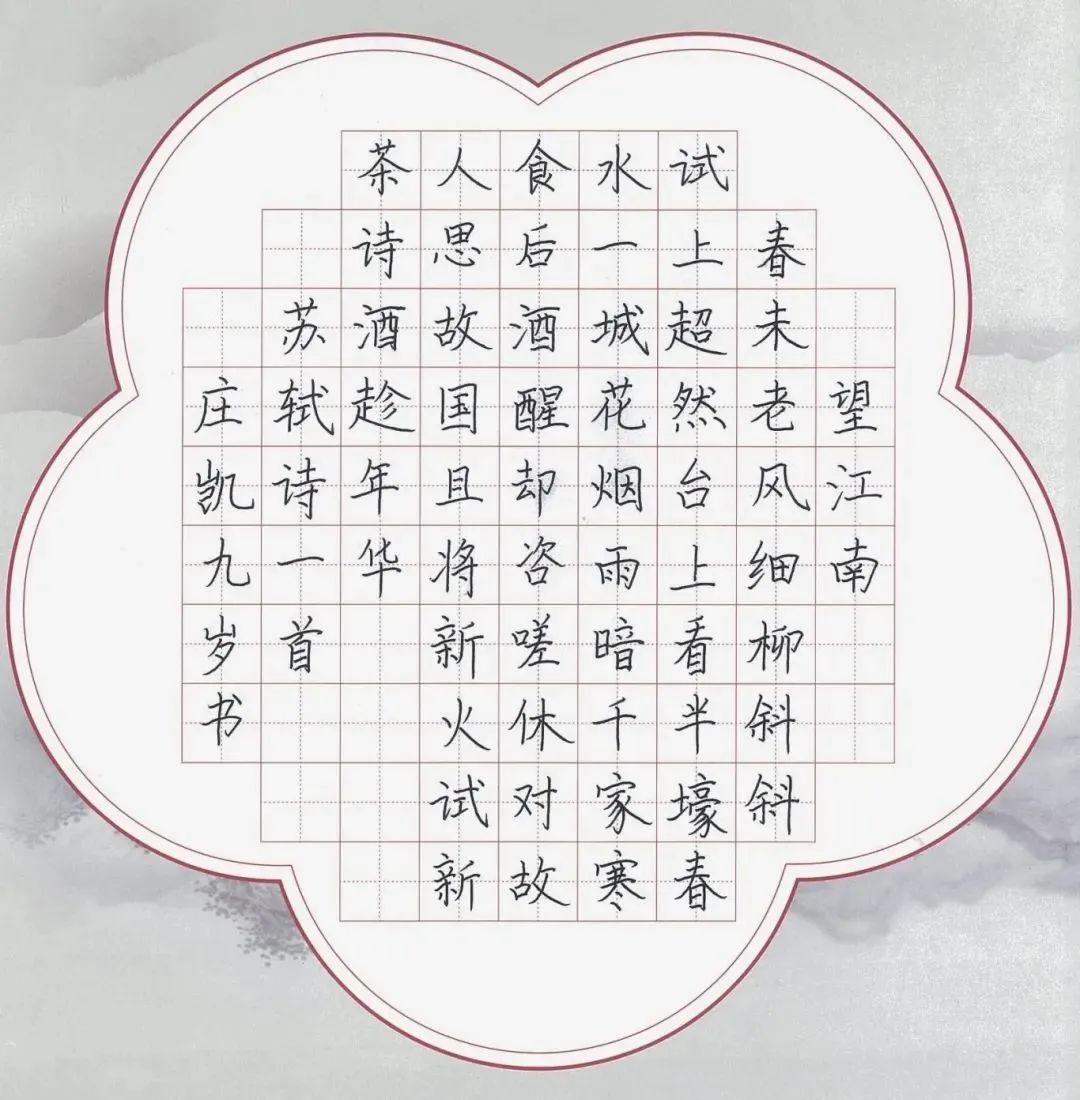 望江南
春未老风细柳斜斜
试上超然台上看半壕春
水一城花烟雨暗千家寒
食后酒醒却咨嗟休对故
人思故国且将新火试新
茶诗酒趁年华
苏轼诗一首
庄凯九岁书